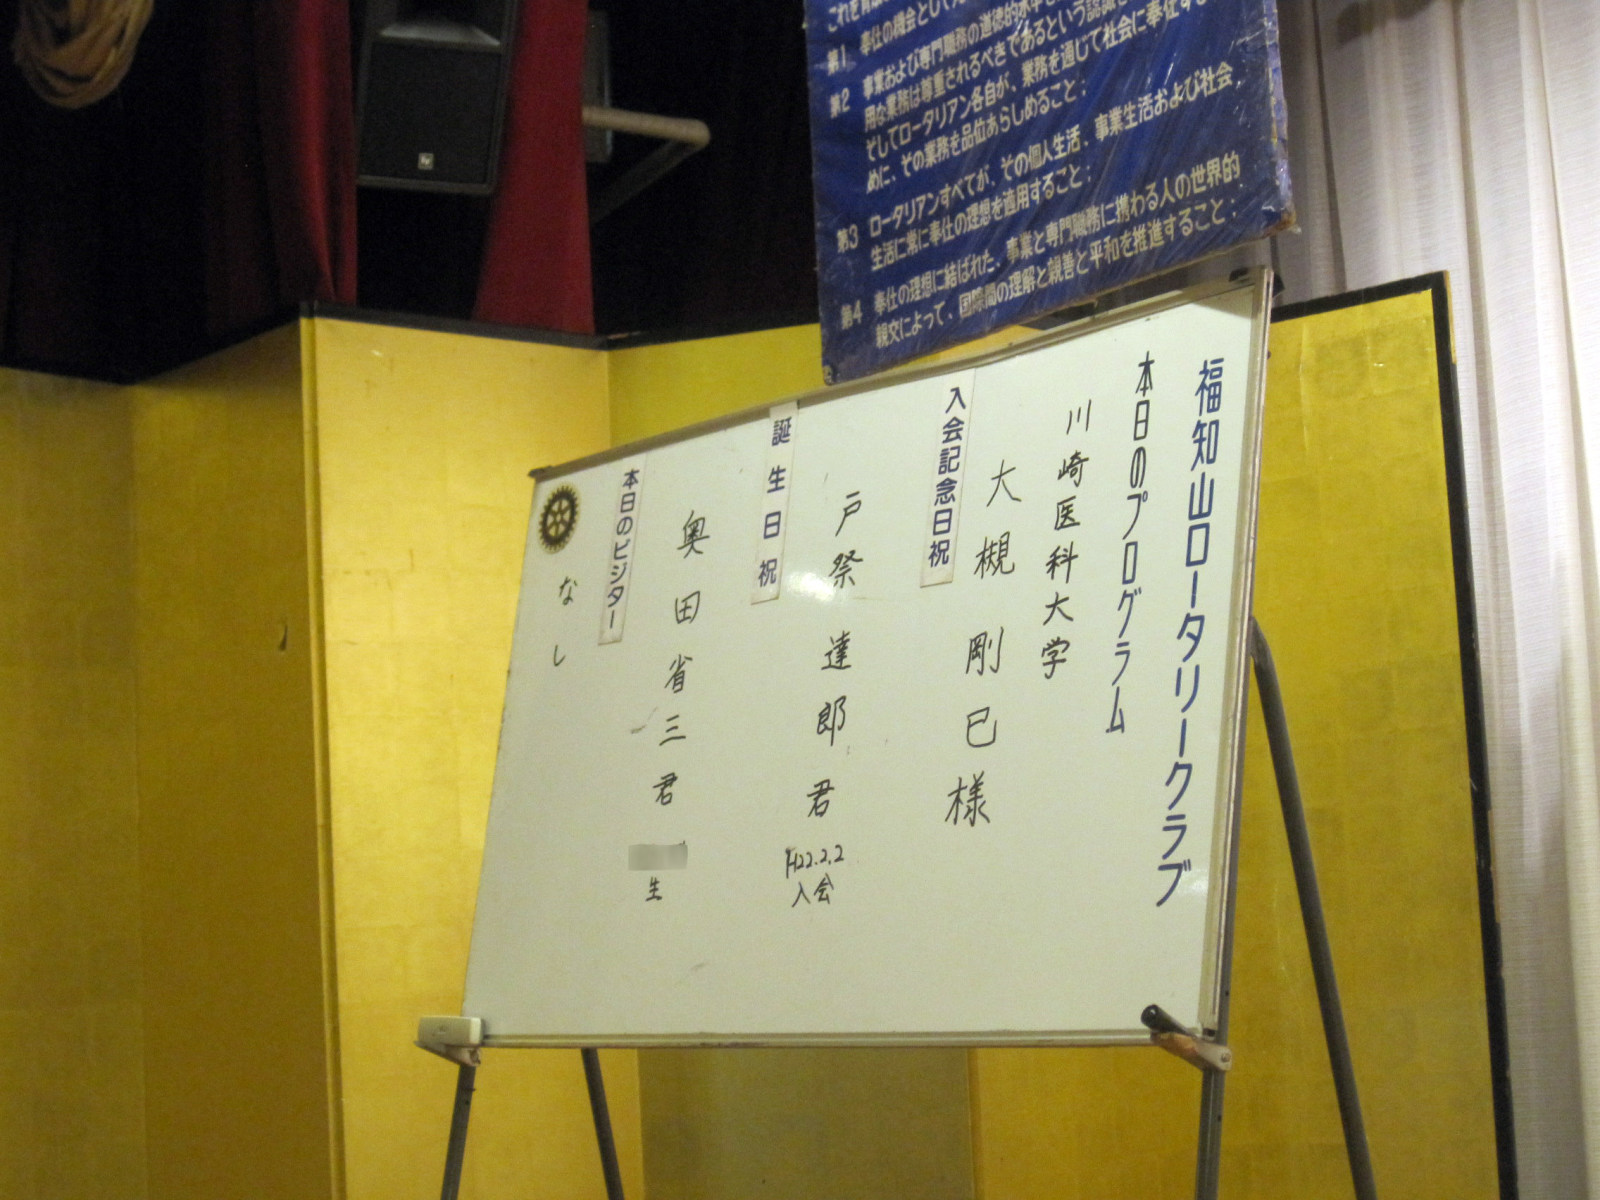 第1 奉仕の機会として
第2 事業および専門職務の道徳的水準
用な業務は尊重されるべきであるという認識
そしてロータリアン各自が、業務を通じて社会に奉仕する
めに、その業務を品位あらしめること;
第3 ロータリアンすべてが、その個人生活、事業生活および社会
生活に常に奉仕の理想を適用すること;
第4 奉仕の理想に結ばれた、事業と専門職務に携わる人の世界的
親交によって、国際間の理解と親善と平和を推進すること;
福知山ロータリークラブ
本日のプログラム
川崎医科大学
大槻剛巳様
入会記念日祝
戸祭達郎君
H22.2.2
入会
誕生日祝
奥田省三君
生
本日のビジター
なし